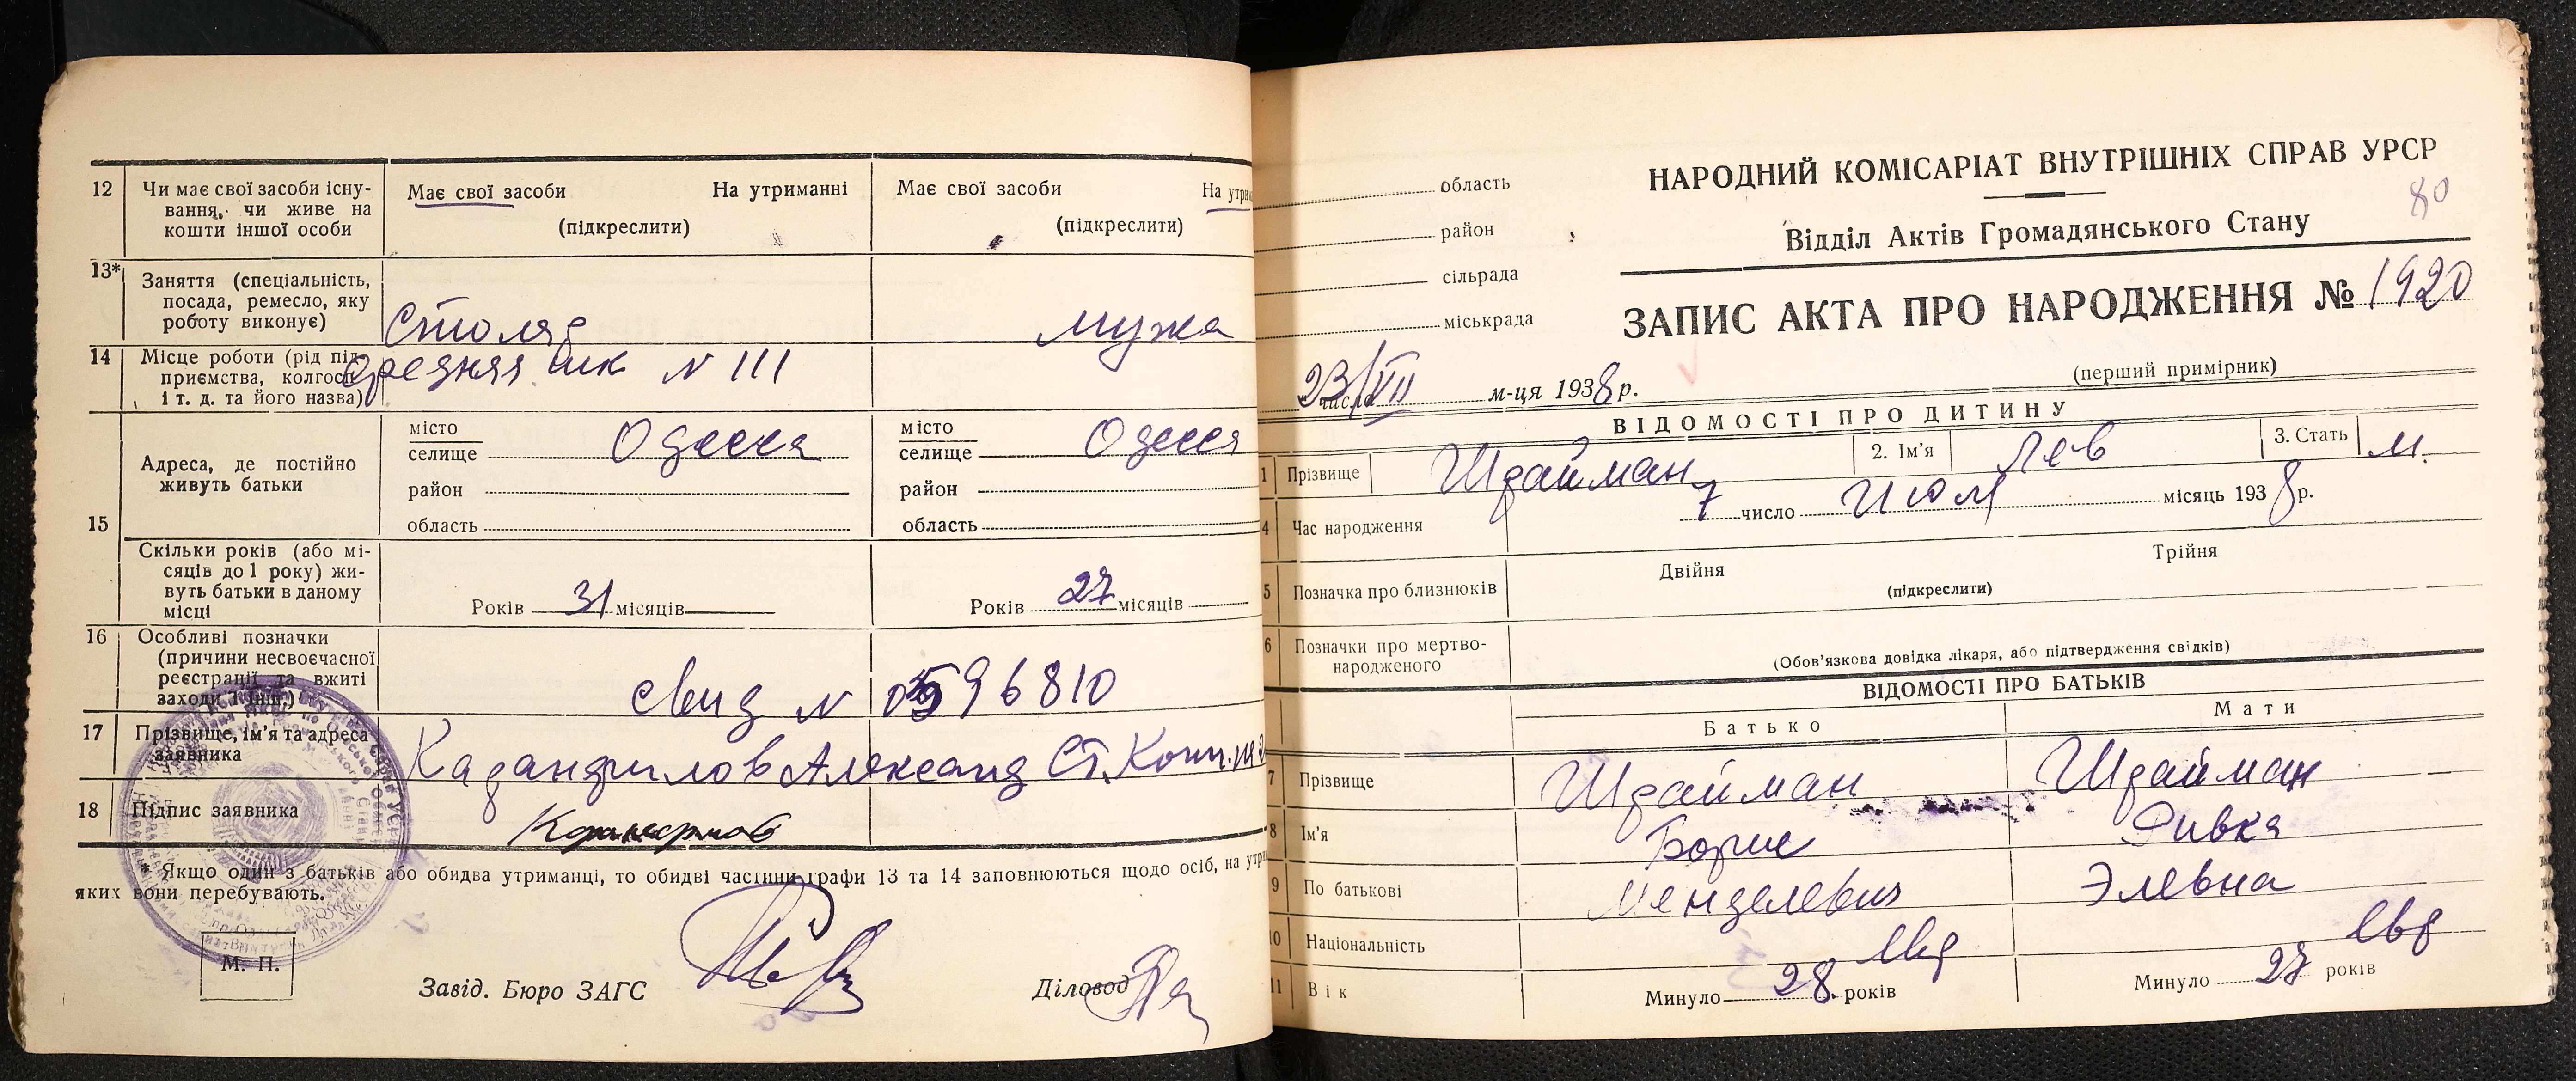 12 Чи має свої засоби існу-
вання, чи живе на
кошти іншої особи
Має свої засоби На утриманні
(підкреслити)
Має свої засоби На утри
(підкреслити)
13* Заняття (спеціальність,
посада, ремесло, яку
роботу виконує)
Столяр
мужа
14 Місце роботи (рід під-
приємства, колгосп
і т. д. та його назва)
Средняя шк N 111
15 Адреса, де постійно
живуть батьки
місто
селище Одесса
район
область
місто
селище Одесса
район
область
Скільки років (або мі-
сяців до 1 року) жи-
вуть батьки в даному
місці
Років 31 місяців
Років 27 місяців
16 Особливі позначки
(причини несвоєчасної
реєстрації та вжиті
заходи і інш.)
свид N 596810
17 Прізвище, ім'я та адреса
заявника
Александ Ст.
18 Підпис заявника
* Якщо один з батьків або обидва утриманці, то обидві частини графи 13 та 14 заповнюються щодо осіб, на утри
яких вони перебувають.
М. П.
Завід. Бюро ЗАГС
Діловод
НАРОДНИЙ КОМІСАРІАТ ВНУТРІШНІХ СПРАВ УРСР
80
Відділ Актів Громадянського Стану
область
район
сільрада
міськрада
ЗАПИС АКТА ПРО НАРОДЖЕННЯ № 1920
(перший примірник)
23/VII число м-ця 1938 р.
ВІДОМОСТІ ПРО ДИТИНУ
1 Прізвище Шрайман 2. Ім'я Лев 3. Стать м.
4 Час народження 7 число Июля місяць 1938 р.
5 Позначка про близнюків Двійня Трійня
(підкреслити)
6 Позначки про мертво-
народженого
(Обов'язкова довідка лікаря, або підтвердження свідків)
ВІДОМОСТІ ПРО БАТЬКІВ
Батько Мати
7 Прізвище Шрайман Шрайман
8 Ім'я Борис Ривка
9 По батькові Менделевич Элевна
10 Національність евр евр
11 Вік Минуло 28 років Минуло 27 років